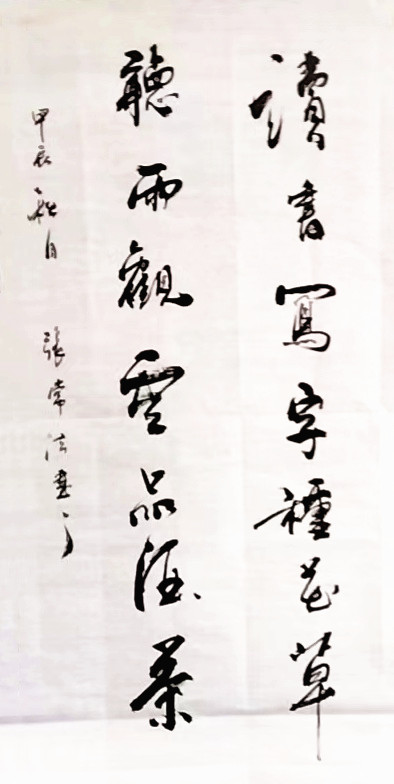 讀書寫字種花草
聽雨觀雲品酒茶
甲辰秋月 張常法書